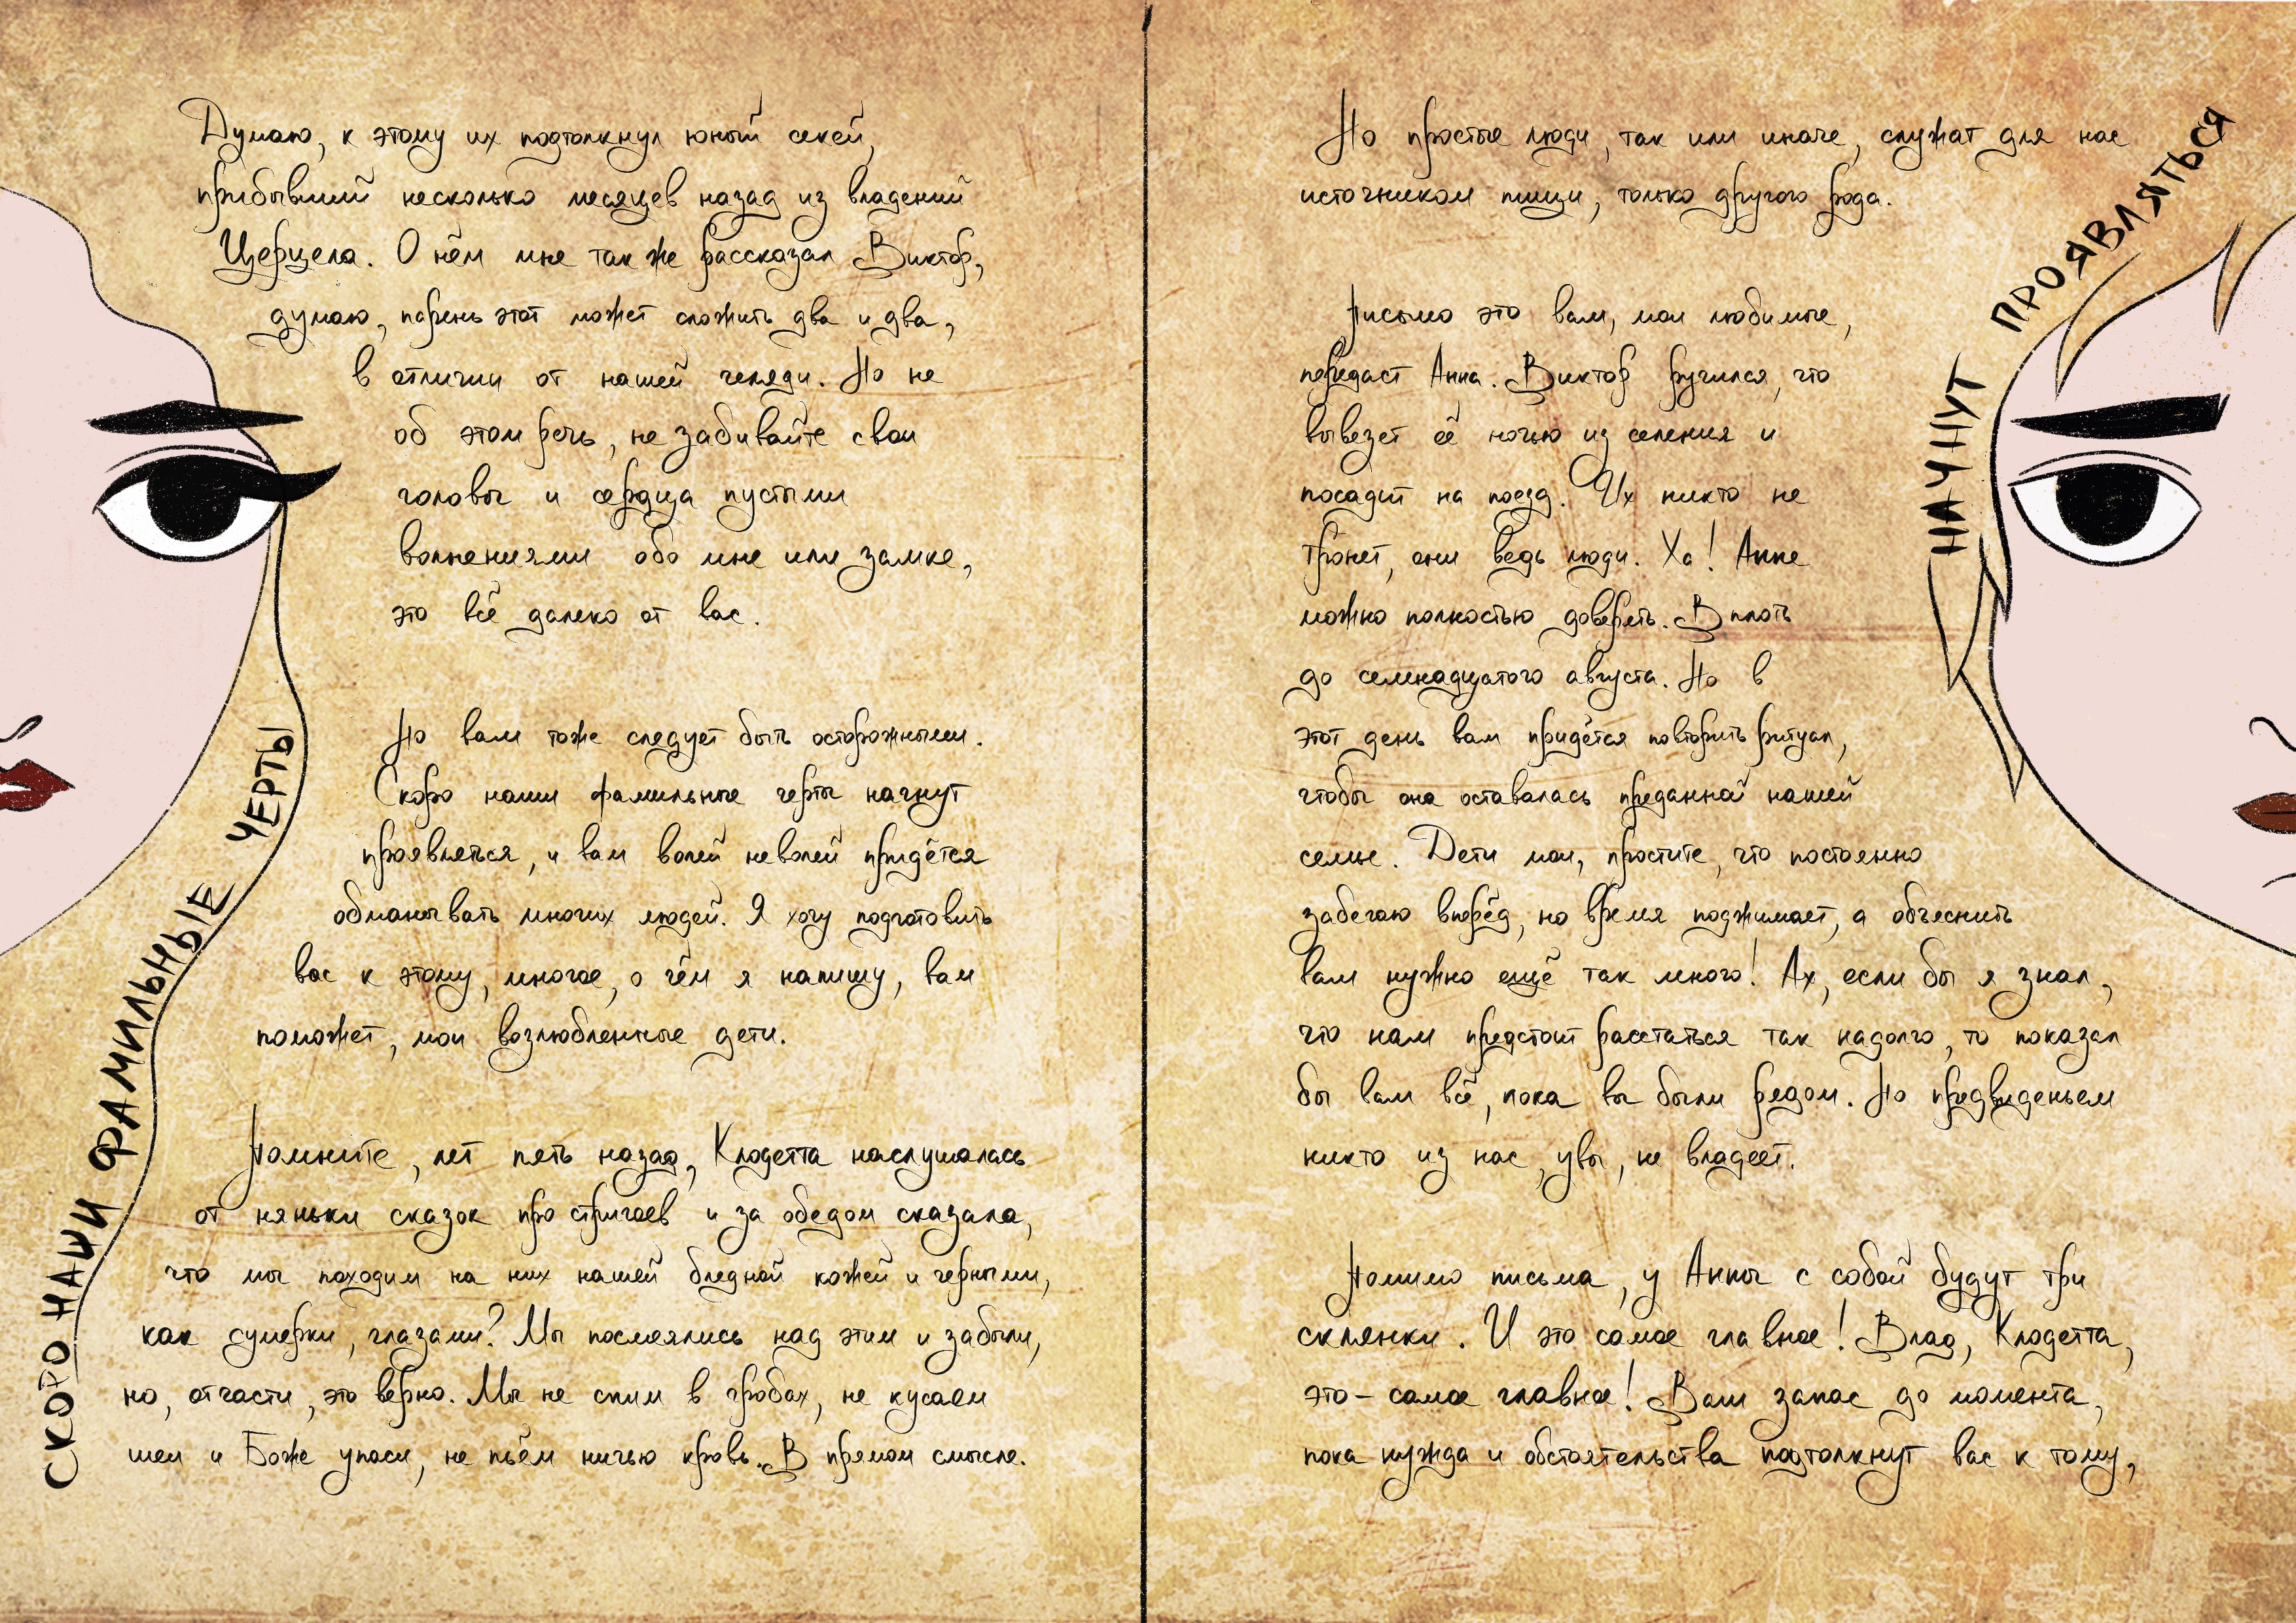 Думаю, к этому их подтолкнул юный секей,
прибывший несколько месяцев назад из владений
Церцела. О нём мне так же рассказал Виктор,
думаю, парень этот может сложить два и два,
в отличии от нашей челяди. Но не
об этом речь, не забивайте свои
головы и сердца пустыми
волнениями обо мне или замке,
это всё далеко от вас.
Но вам тоже следует быть осторожными.
Скоро наши фамильные черты начнут
проявляться, и вам волей неволей придётся
обманывать многих людей. Я хочу подготовить
вас к этому, многое, о чём я напишу, вам
поможет, мои возлюбленные дети.
Помните, лет пять назад, Клодетта наслушалась
от няньки сказок про стригоев и за обедом сказала,
что мы походим на них нашей бледной кожей и черными,
как сумерки, глазами? Мы посмеялись над этим и забыли,
но, отчасти, это верно. Мы не спим в гробах, не кусаем
шеи и Боже упаси, не пьём ничью кровь. В прямом смысле.
СКОРО НАШИ ФАМИЛЬНЫЕ ЧЕРТЫ
Но простые люди, так или иначе, служат для нас
источником пищи, только другого рода.
Письмо это вам, мои любимые,
передаст Анна. Виктор ручился, что
вывезет её ночью из селения и
посадит на поезд. Их никто не
тронет, они ведь люди. Ха! Анне
можно полностью доверять. Вплоть
до семнадцатого августа. Но в
этот день вам придётся повторить ритуал,
чтобы она оставалась преданной нашей
семье. Дети мои, простите, что постоянно
забегаю вперёд, но время поджимает, а объяснить
вам нужно ещё так много! Ах, если бы я знал,
что нам предстоит расстаться так надолго, то показал
бы вам всё, пока вы были рядом. Но предвиденьем
никто из нас, увы, не владеет.
Помимо письма, у Анны с собой будут три
склянки. И это самое главное! Влад, Клодетта,
это - самое главное! Ваш запас до момента,
пока нужда и обстоятельства подтолкнут вас к тому,
НАЧНУТ ПРОЯВЛЯТЬСЯ